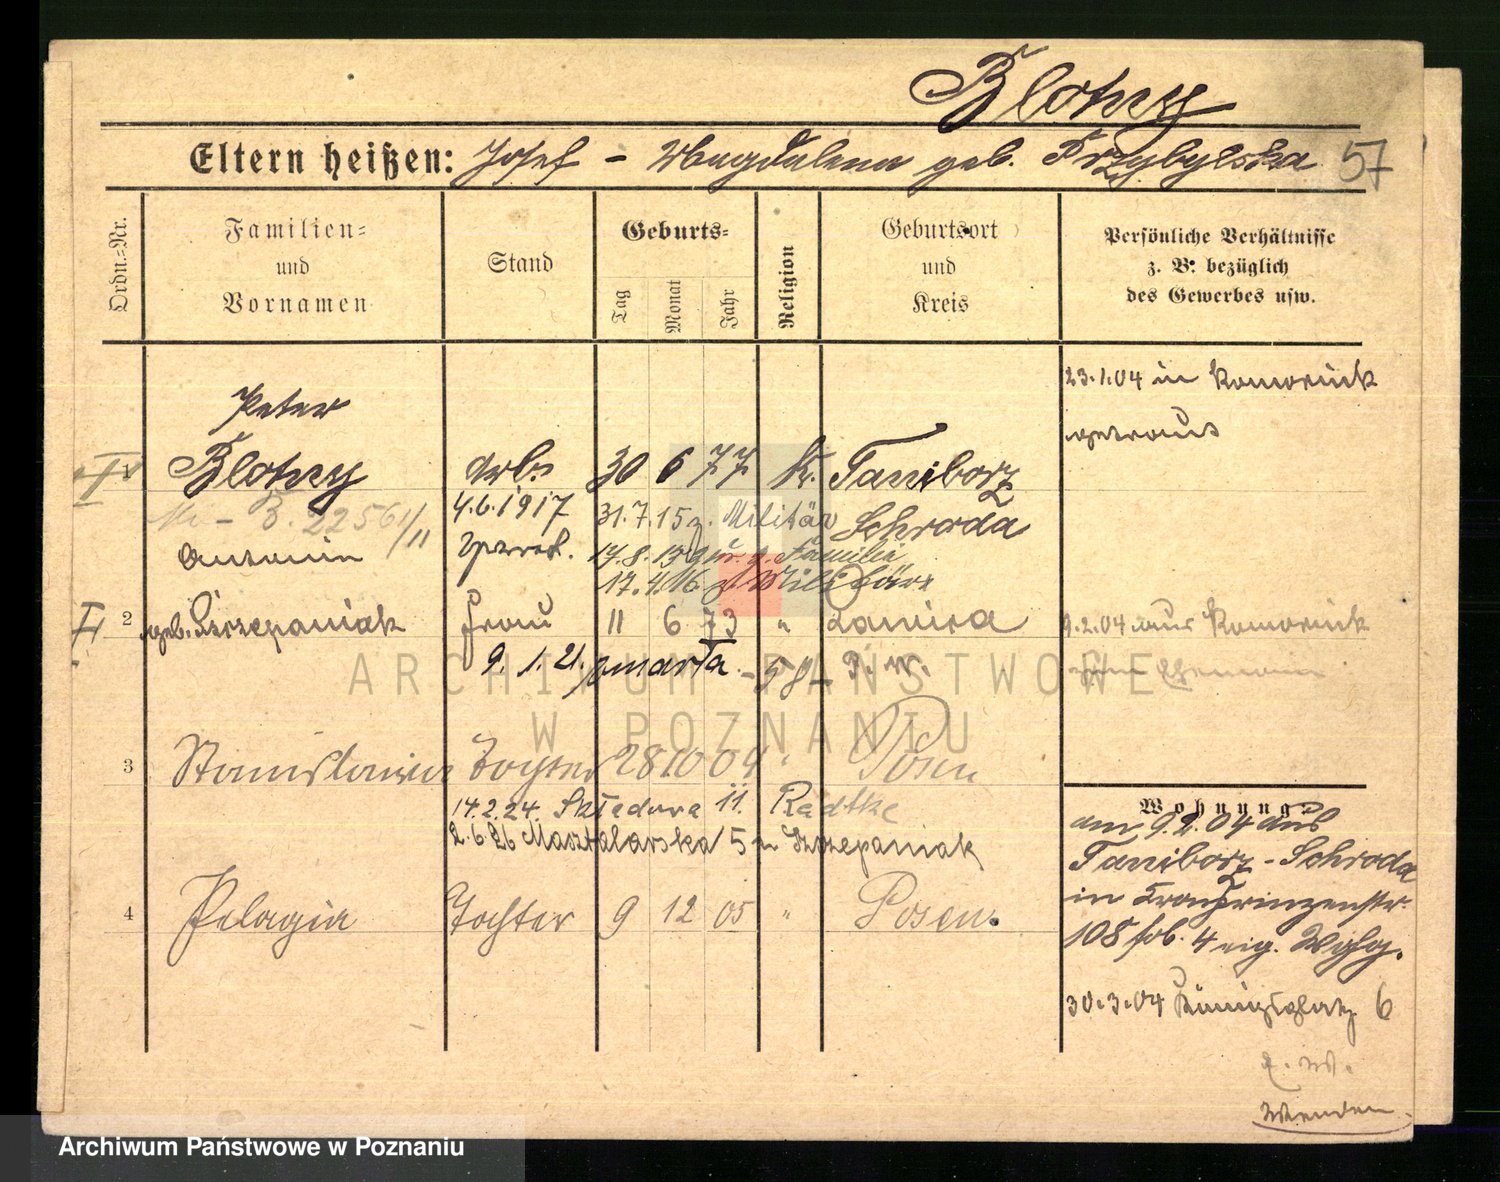 Blotny
Eltern heißen: Josef - Magdalena geb. Przybylska 57
Ordn.-Nr.
Familien-
und
Vornamen
Stand
Geburts-
Tag
Monat
Jahr
Religion
Geburtsort
und
Kreis
Persönliche Verhältnisse
z. B. bezüglich
des Gewerbes usw.
23.1.04 in Komornik
getraut
Peter
I Blotny Arb. 30 6 77 k. Taniborz
B. 22561/11
4.6.1917 31.7.15 z. Militär Schroda
17.8.15 zur. z. Familie
17.4.16 z. Militär
Antonin
II 2 geb. Szczepaniak Frau 11 6 73 " Zanira
9.2.04 aus Komornik
9.1.21 zmarła - 58 - P. W.
zum Ehemann
3 Stanislawa Tochter 28 10 04 " Posen
14.2.24. Składowa 11. Radtke
2.6.26 Masztalarska 5 Szczepaniak
4 Pelagia Tochter 9 12 05 " Posen.
Wohnung:
am 9.2.04 aus
Taniborz - Schroda
in Kronprinzenstr.
108 4 eig. Whg.
30.3.04 Königsplatz 6
Wenden
ARCHIWUM PAŃSTWOWE
W POZNANIU
Archiwum Państwowe w Poznaniu